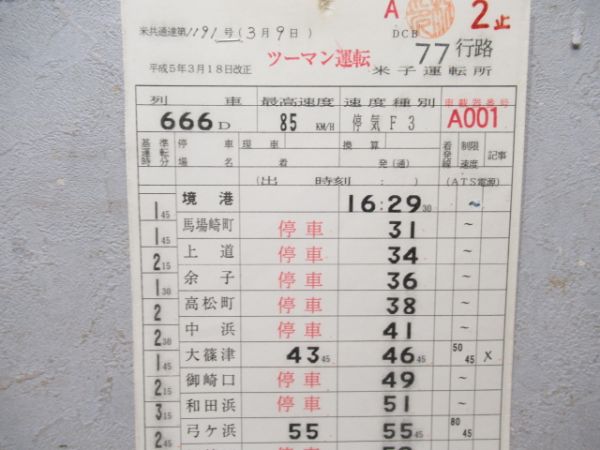 A 2止
米共通達第1191号(3月9日) DCB
ツーマン運転 77行路
平成5年3月18日改正 米子運転所
列 車 最高速度 速度種別 車載器番号
666D 85 KM/H 停気F3 A001
基準運転時分 停車場名 現車 換算 着発線 制限速度 記事
着 発(通)
(出 時刻 : ) (ATS電源)
境港 16:29 30 ~
1 45
馬場崎町 停車 31 ~
1 45
上道 停車 34 ~
2 15
余子 停車 36 ~
1 30
高松町 停車 38 ~
2
中浜 停車 41 ~
2 30
大篠津 43 45 46 45 50 45 X
1 45
御崎口 停車 49 ~
2 15
和田浜 停車 51 ~
3 15
弓ヶ浜 55 55 45 80 45
2 45